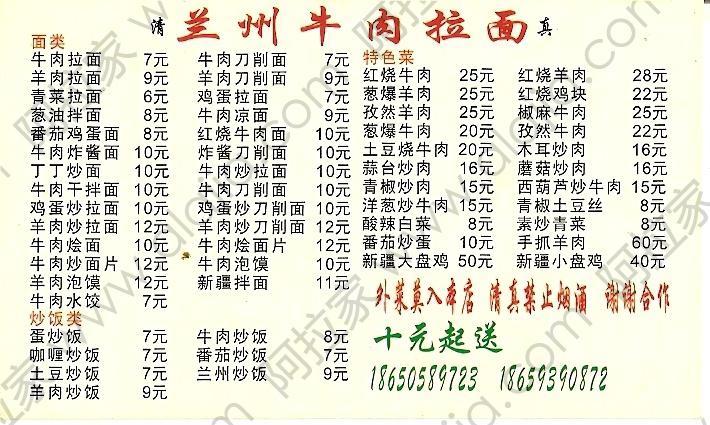 清 兰州牛肉拉面 真
面类
牛肉拉面 7元 牛肉刀削面 7元
羊肉拉面 9元 羊肉刀削面 9元
青菜拉面 6元 鸡蛋拉面 7元
葱油拌面 8元 牛肉凉面 9元
番茄鸡蛋面 8元 红烧牛肉面 10元
牛肉炸酱面 10元 炸酱刀削面 10元
丁丁炒面 10元 牛肉炒拉面 10元
牛肉干拌面 10元 牛肉刀削面 10元
鸡蛋炒拉面 10元 鸡蛋炒刀削面 10元
羊肉炒拉面 12元 羊肉炒刀削面 12元
牛肉烩面 10元 牛肉烩面片 12元
牛肉炒面片 12元 牛肉泡馍 10元
羊肉泡馍 12元 新疆拌面 11元
牛肉水饺 7元
炒饭类
蛋炒饭 7元 牛肉炒饭 8元
咖喱炒饭 7元 番茄炒饭 7元
土豆炒饭 7元 兰州炒饭 9元
羊肉炒饭 9元
特色菜
红烧牛肉 25元 红烧羊肉 28元
葱爆羊肉 25元 红烧鸡块 22元
孜然羊肉 25元 椒麻牛肉 25元
葱爆牛肉 20元 孜然牛肉 22元
土豆烧牛肉 20元 木耳炒肉 16元
蒜台炒肉 16元 蘑菇炒肉 16元
青椒炒肉 15元 西葫芦炒牛肉 15元
洋葱炒牛肉 15元 青椒土豆丝 8元
酸辣白菜 8元 素炒青菜 8元
番茄炒蛋 10元 手抓羊肉 60元
新疆大盘鸡 50元 新疆小盘鸡 40元
外菜莫入本店 清真禁止烟酒 谢谢合作
十元起送
18650589723 18659390872
阿拉家 www.dlajia.com